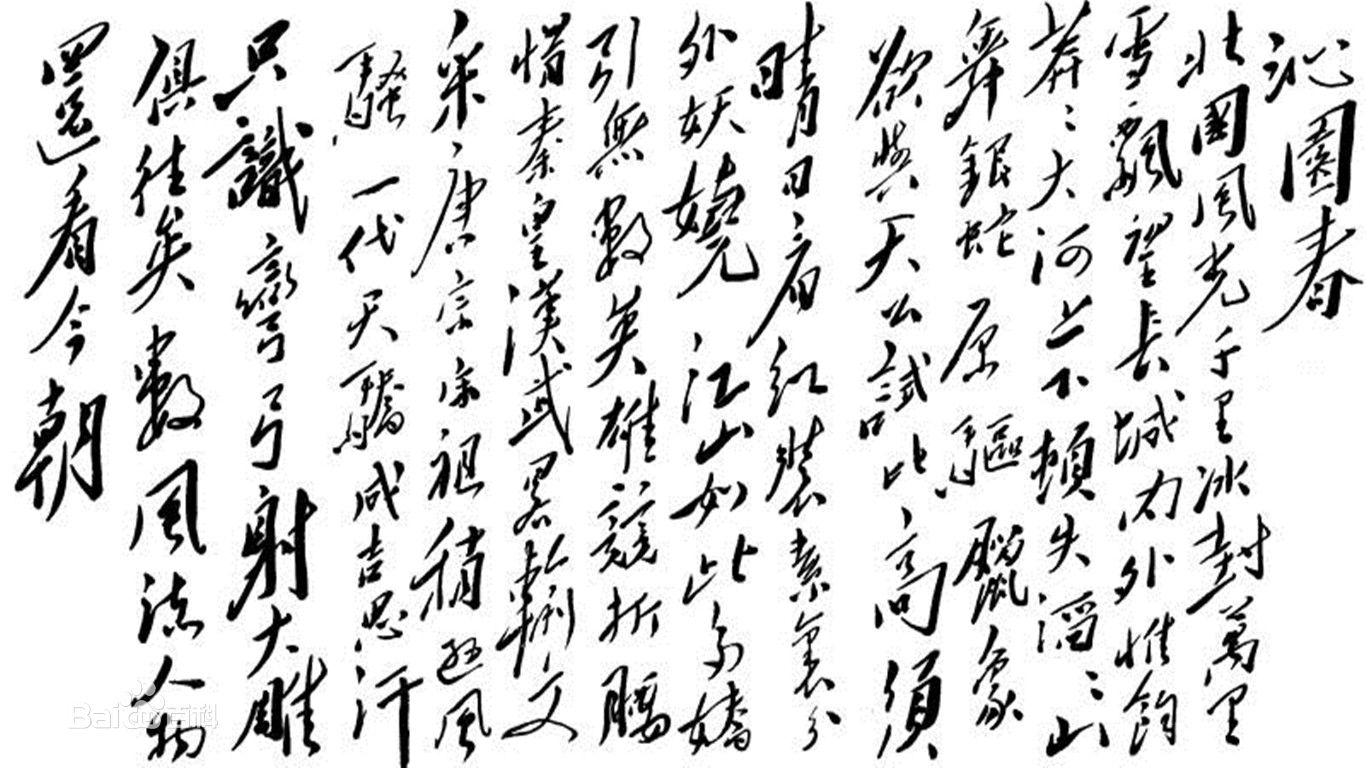 沁園春
北國風光千里冰封萬里
雪飄望長城内外惟餘
莽〻大河上下頓失滔〻山
舞銀蛇原驅臘象
欲與天公試比高須
晴日看紅裝素裹分
外妖嬈江山如此多嬌
引無數英雄競折腰
惜秦皇漢武畧輸文
采唐宗宋祖稍遜風
騷一代天驕成吉思汗
只識彎弓射大雕
俱往矣數風流人物
還看今朝
Baidu百科